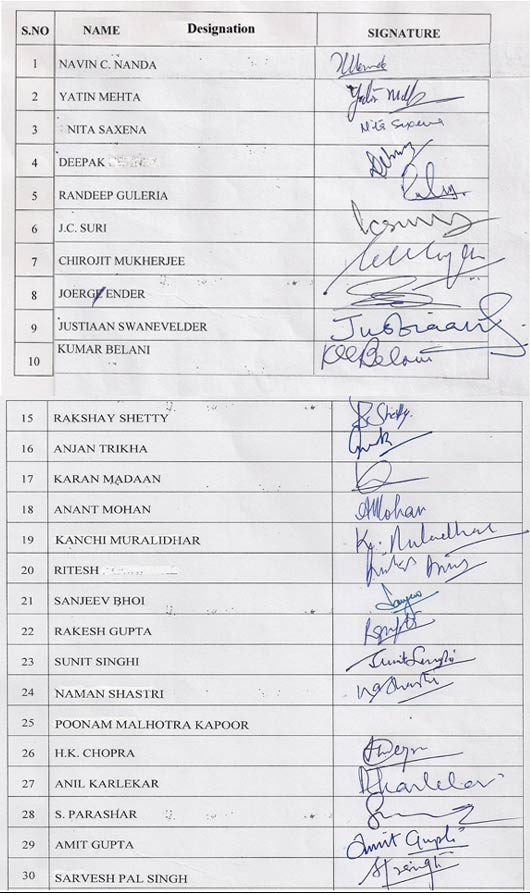 S.NO NAME Designation SIGNATURE
1 NAVIN C. NANDA
2 YATIN MEHTA Yatin Mehta
3 NITA SAXENA Nita Saxena
4 DEEPAK
5 RANDEEP GULERIA
6 J.C. SURI
7 CHIROJIT MUKHERJEE
8 JOERGE ENDER
9 JUSTIAAN SWANEVELDER Justiaan S
10 KUMAR BELANI KGBelani
15 RAKSHAY SHETTY Shetty
16 ANJAN TRIKHA
17 KARAN MADAAN
18 ANANT MOHAN AMohan
19 KANCHI MURALIDHAR K. Muralidhar
20 RITESH
21 SANJEEV BHOI Sanjeev
22 RAKESH GUPTA RGupta
23 SUNIT SINGHI Sunit Singhi
24 NAMAN SHASTRI
25 POONAM MALHOTRA KAPOOR
26 H.K. CHOPRA
27 ANIL KARLEKAR AKarlekar
28 S. PARASHAR
29 AMIT GUPTA Amit Gupta
30 SARVESH PAL SINGH